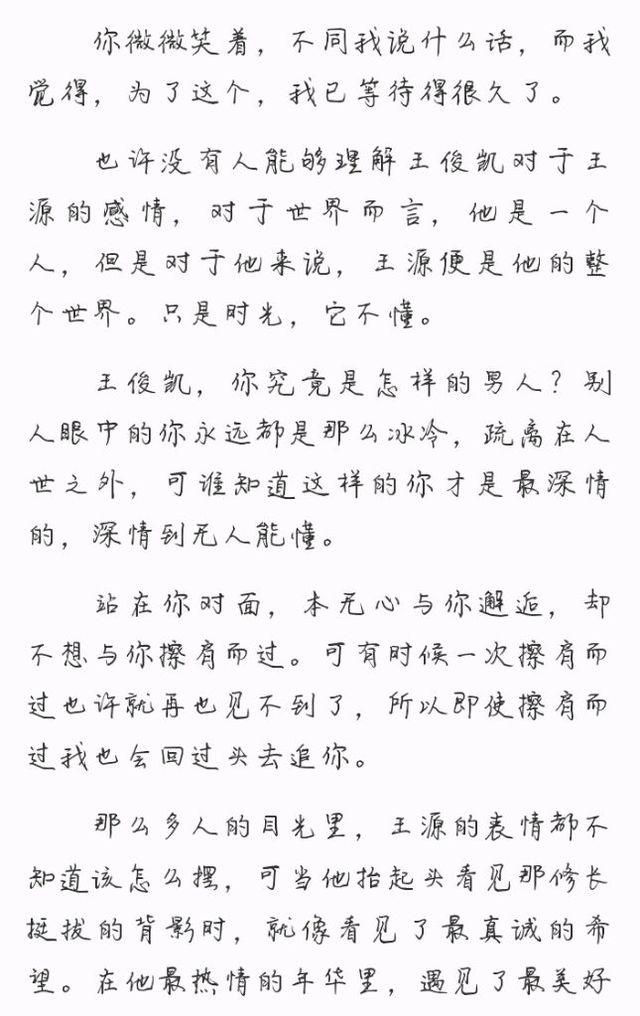 你微微笑着，不同我说什么话，而我
觉得，为了这个，我已等待得很久了。
也许没有人能够理解王俊凯对于王
源的感情，对于世界而言，他是一个
人，但是对于他来说，王源便是他的整
个世界。只是时光，它不懂。
王俊凯，你究竟是怎样的男人？别
人眼中的你永远都是那么冰冷，疏离在人
世之外，可谁知道这样的你才是最深情
的，深情到无人能懂。
站在你对面，本无心与你邂逅，却
不想与你擦肩而过。可有时候一次擦肩而
过也许就再也见不到了，所以即使擦肩而
过我也会回过头去追你。
那么多人的目光里，王源的表情都不
知道该怎么摆，可当他抬起头看见那修长
挺拔的背影时，就像看见了最真诚的希
望。在他最热情的年华里，遇见了最美好